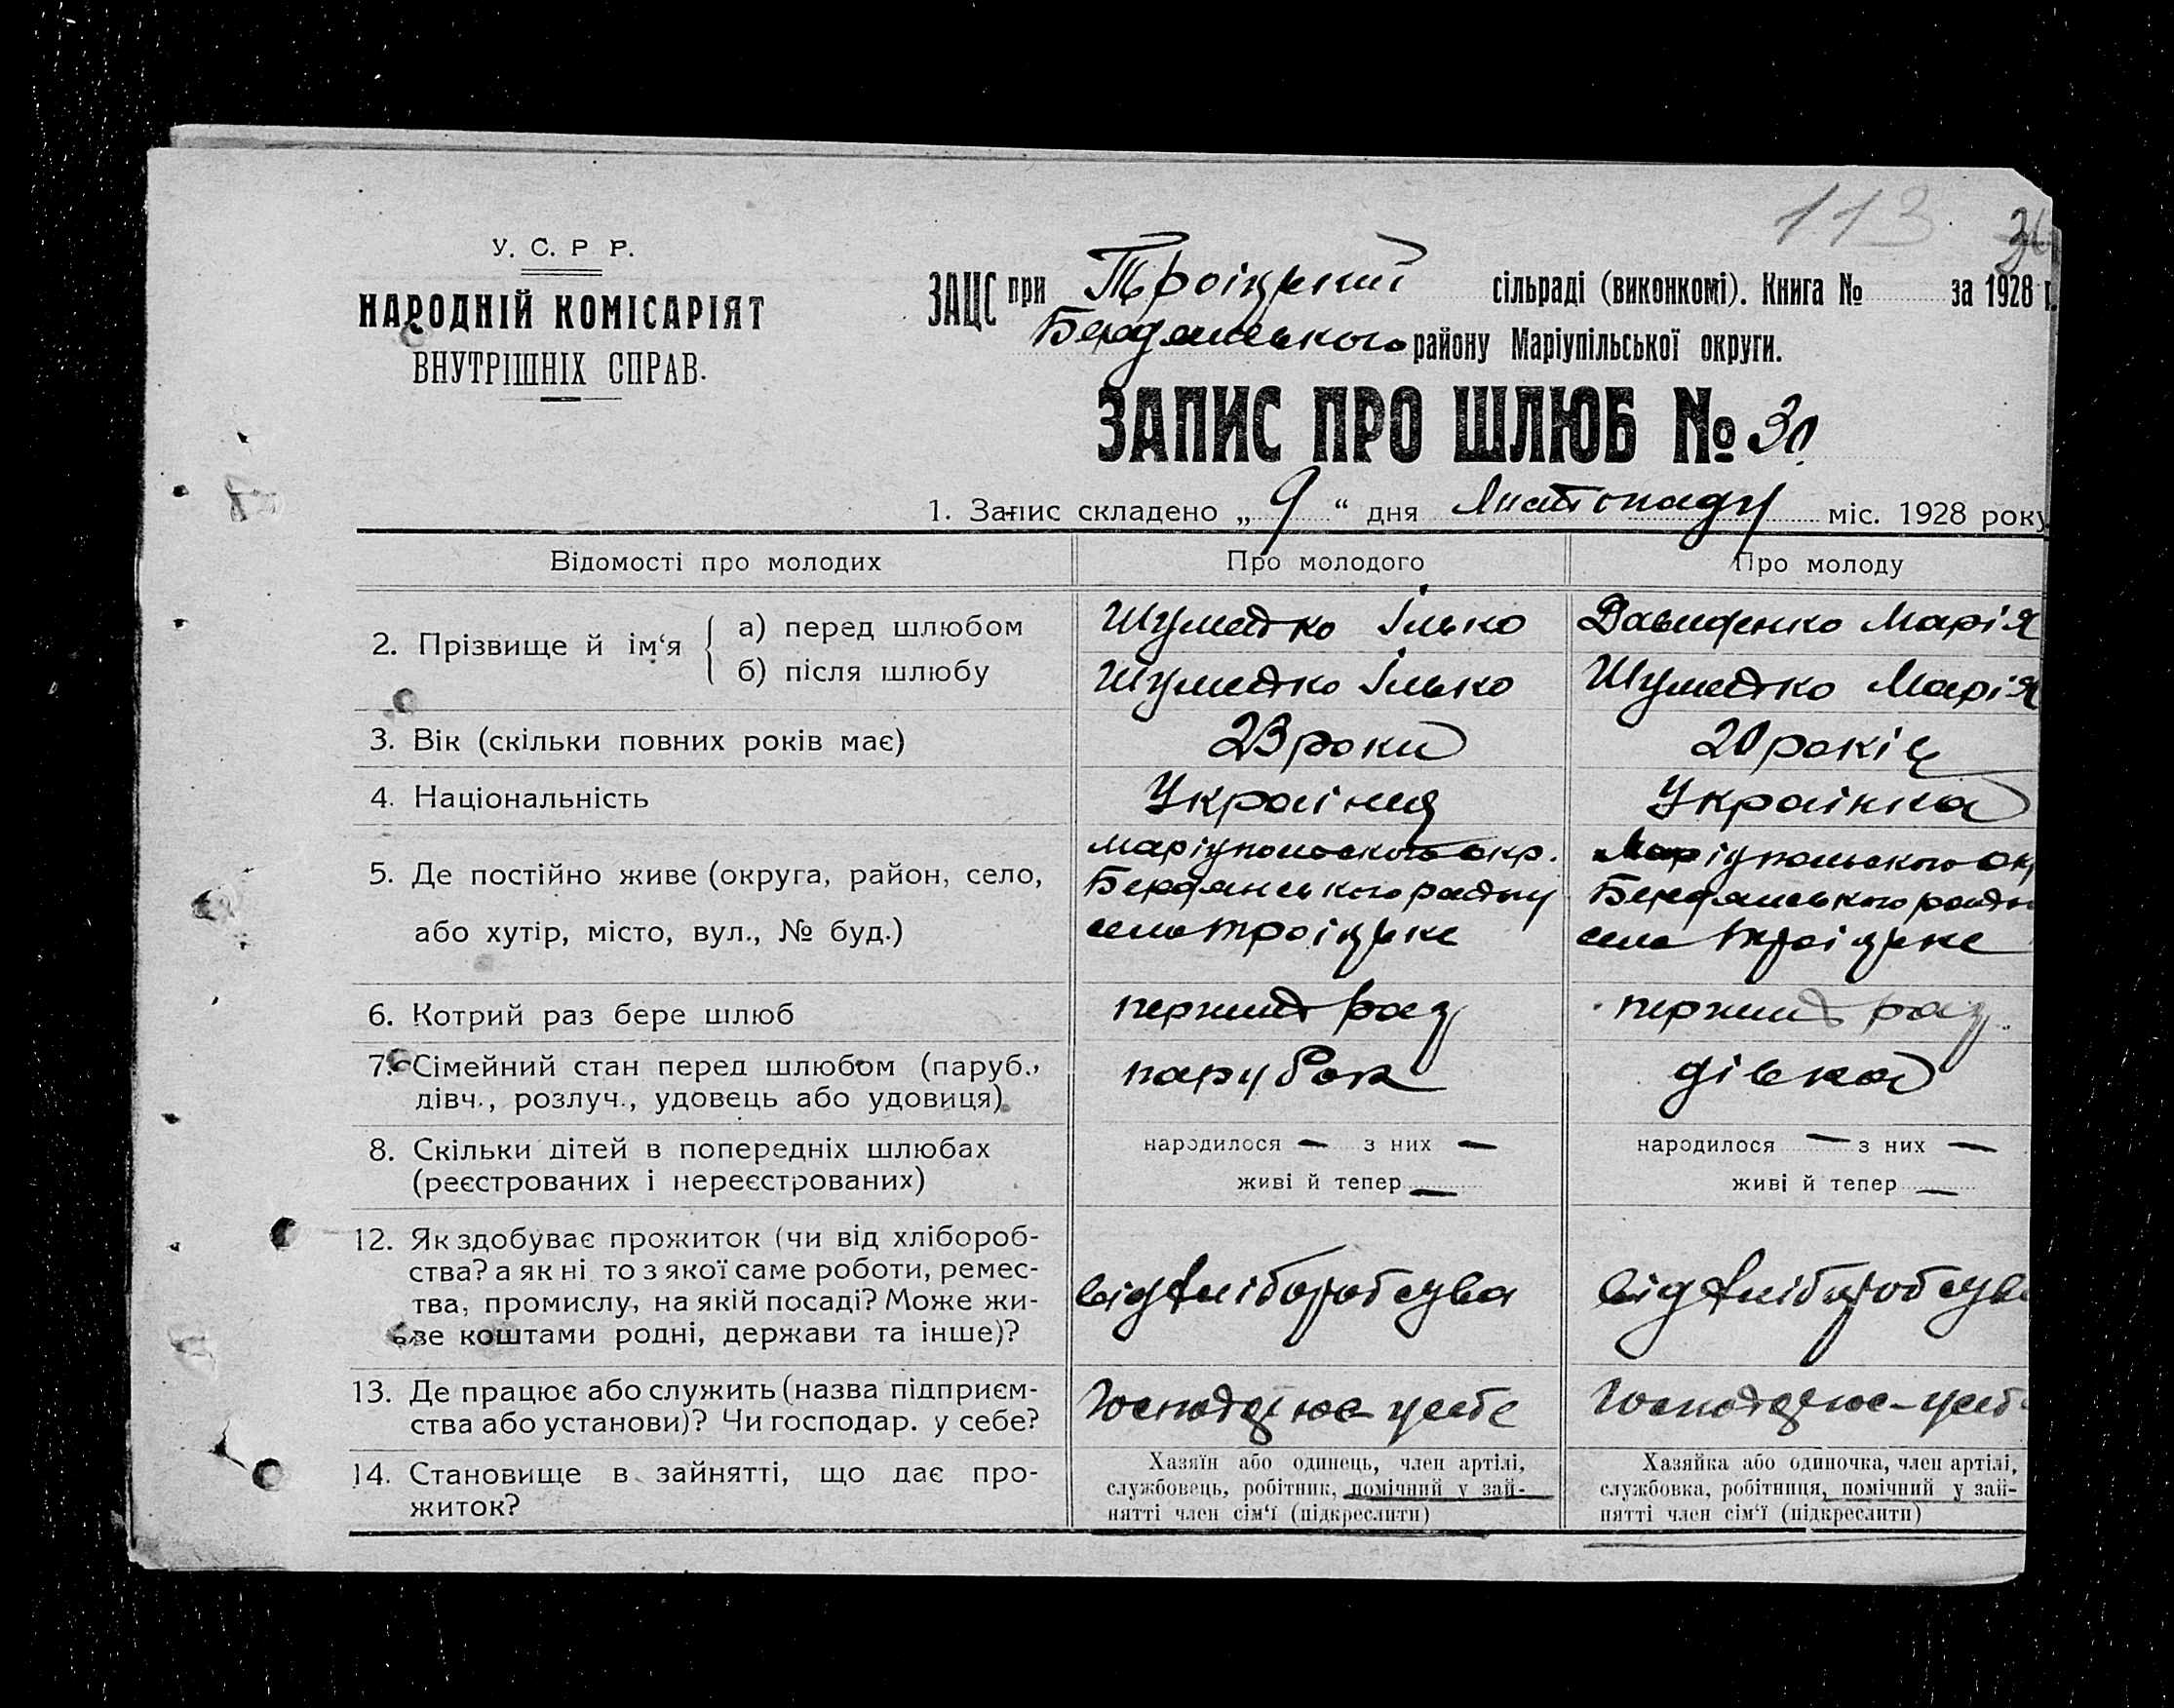 113
У. С. Р Р.
НАРОДНІЙ КОМІСАРІЯТ
ВНУТРІШНІХ СПРАВ.
ЗАЦС при Троіцькій сільраді (виконкомі). Книга № за 1928 г.
Бердянського району Маріупільської округи.
ЗАПИС ПРО ШЛЮБ № 30
1. Запис складено „ 9 “ дня Листопаду міс. 1928 року
Відомості про молодих
Про молодого
Про молоду
2. Прізвище й ім‘я
а) перед шлюбом
Шумейко Ілько
Давиденко Марія
б) після шлюбу
Шумейко Ілько
Шумейко Марія
3. Вік (скільки повних років має)
23 роки
20 років
4. Національність
Українец
Українка
5. Де постійно живе (округа, район, село,
або хутір, місто, вул., № буд.)
Маріупольського окр.
Бердянського району
село Троіцьке
Маріупольського ок
Бердянського району
село Троіцьке
6. Котрий раз бере шлюб
перший раз
перший раз
7. Сімейний стан перед шлюбом (паруб.,
дівч., розлуч., удовець або удовиця)
парубок
дівка
8. Скільки дітей в попередніх шлюбах
(реєстрованих і нереєстрованих)
народилося — з них —
живі й тепер —
народилося — з них —
живі й тепер —
12. Як здобуває прожиток (чи від хлібороб-
ства? а як ні то з якої саме роботи, ремес-
тва, промислу, на якій посаді? Може жи-
ве коштами родні, держави та інше)?
від хліборобства
від хліборобства
13. Де працює або служить (назва підприєм-
ства або установи)? Чи господар. у себе?
Господарює у себе
Господарює - у себ
14. Становище в зайнятті, що дає про-
житок?
Хазяїн або одинець, член артілі,
службовець, робітник, помічний у зай-
нятті член сім‘ї (підкреслити)
Хазяйка або одиночка, член артілі,
службовка, робітниця, помічний у зай-
нятті член сім‘ї (підкреслити)